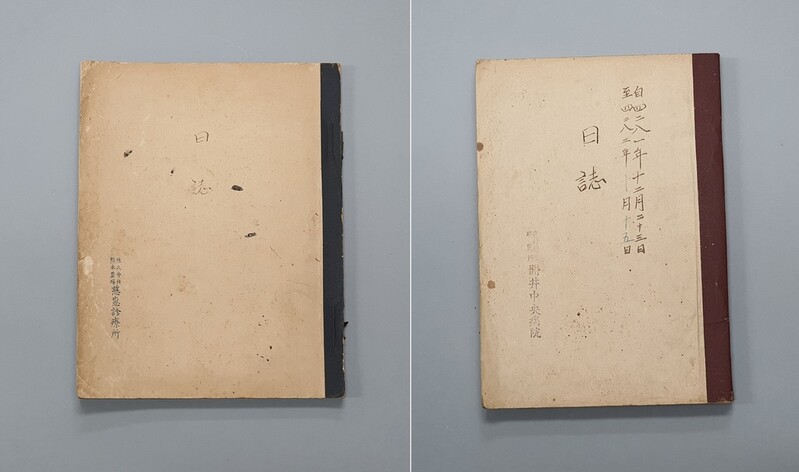 日誌
慈惠診療所
自四二八一年十二月二十三日
至四二八二年十一月十五日
日誌
開井中央病院